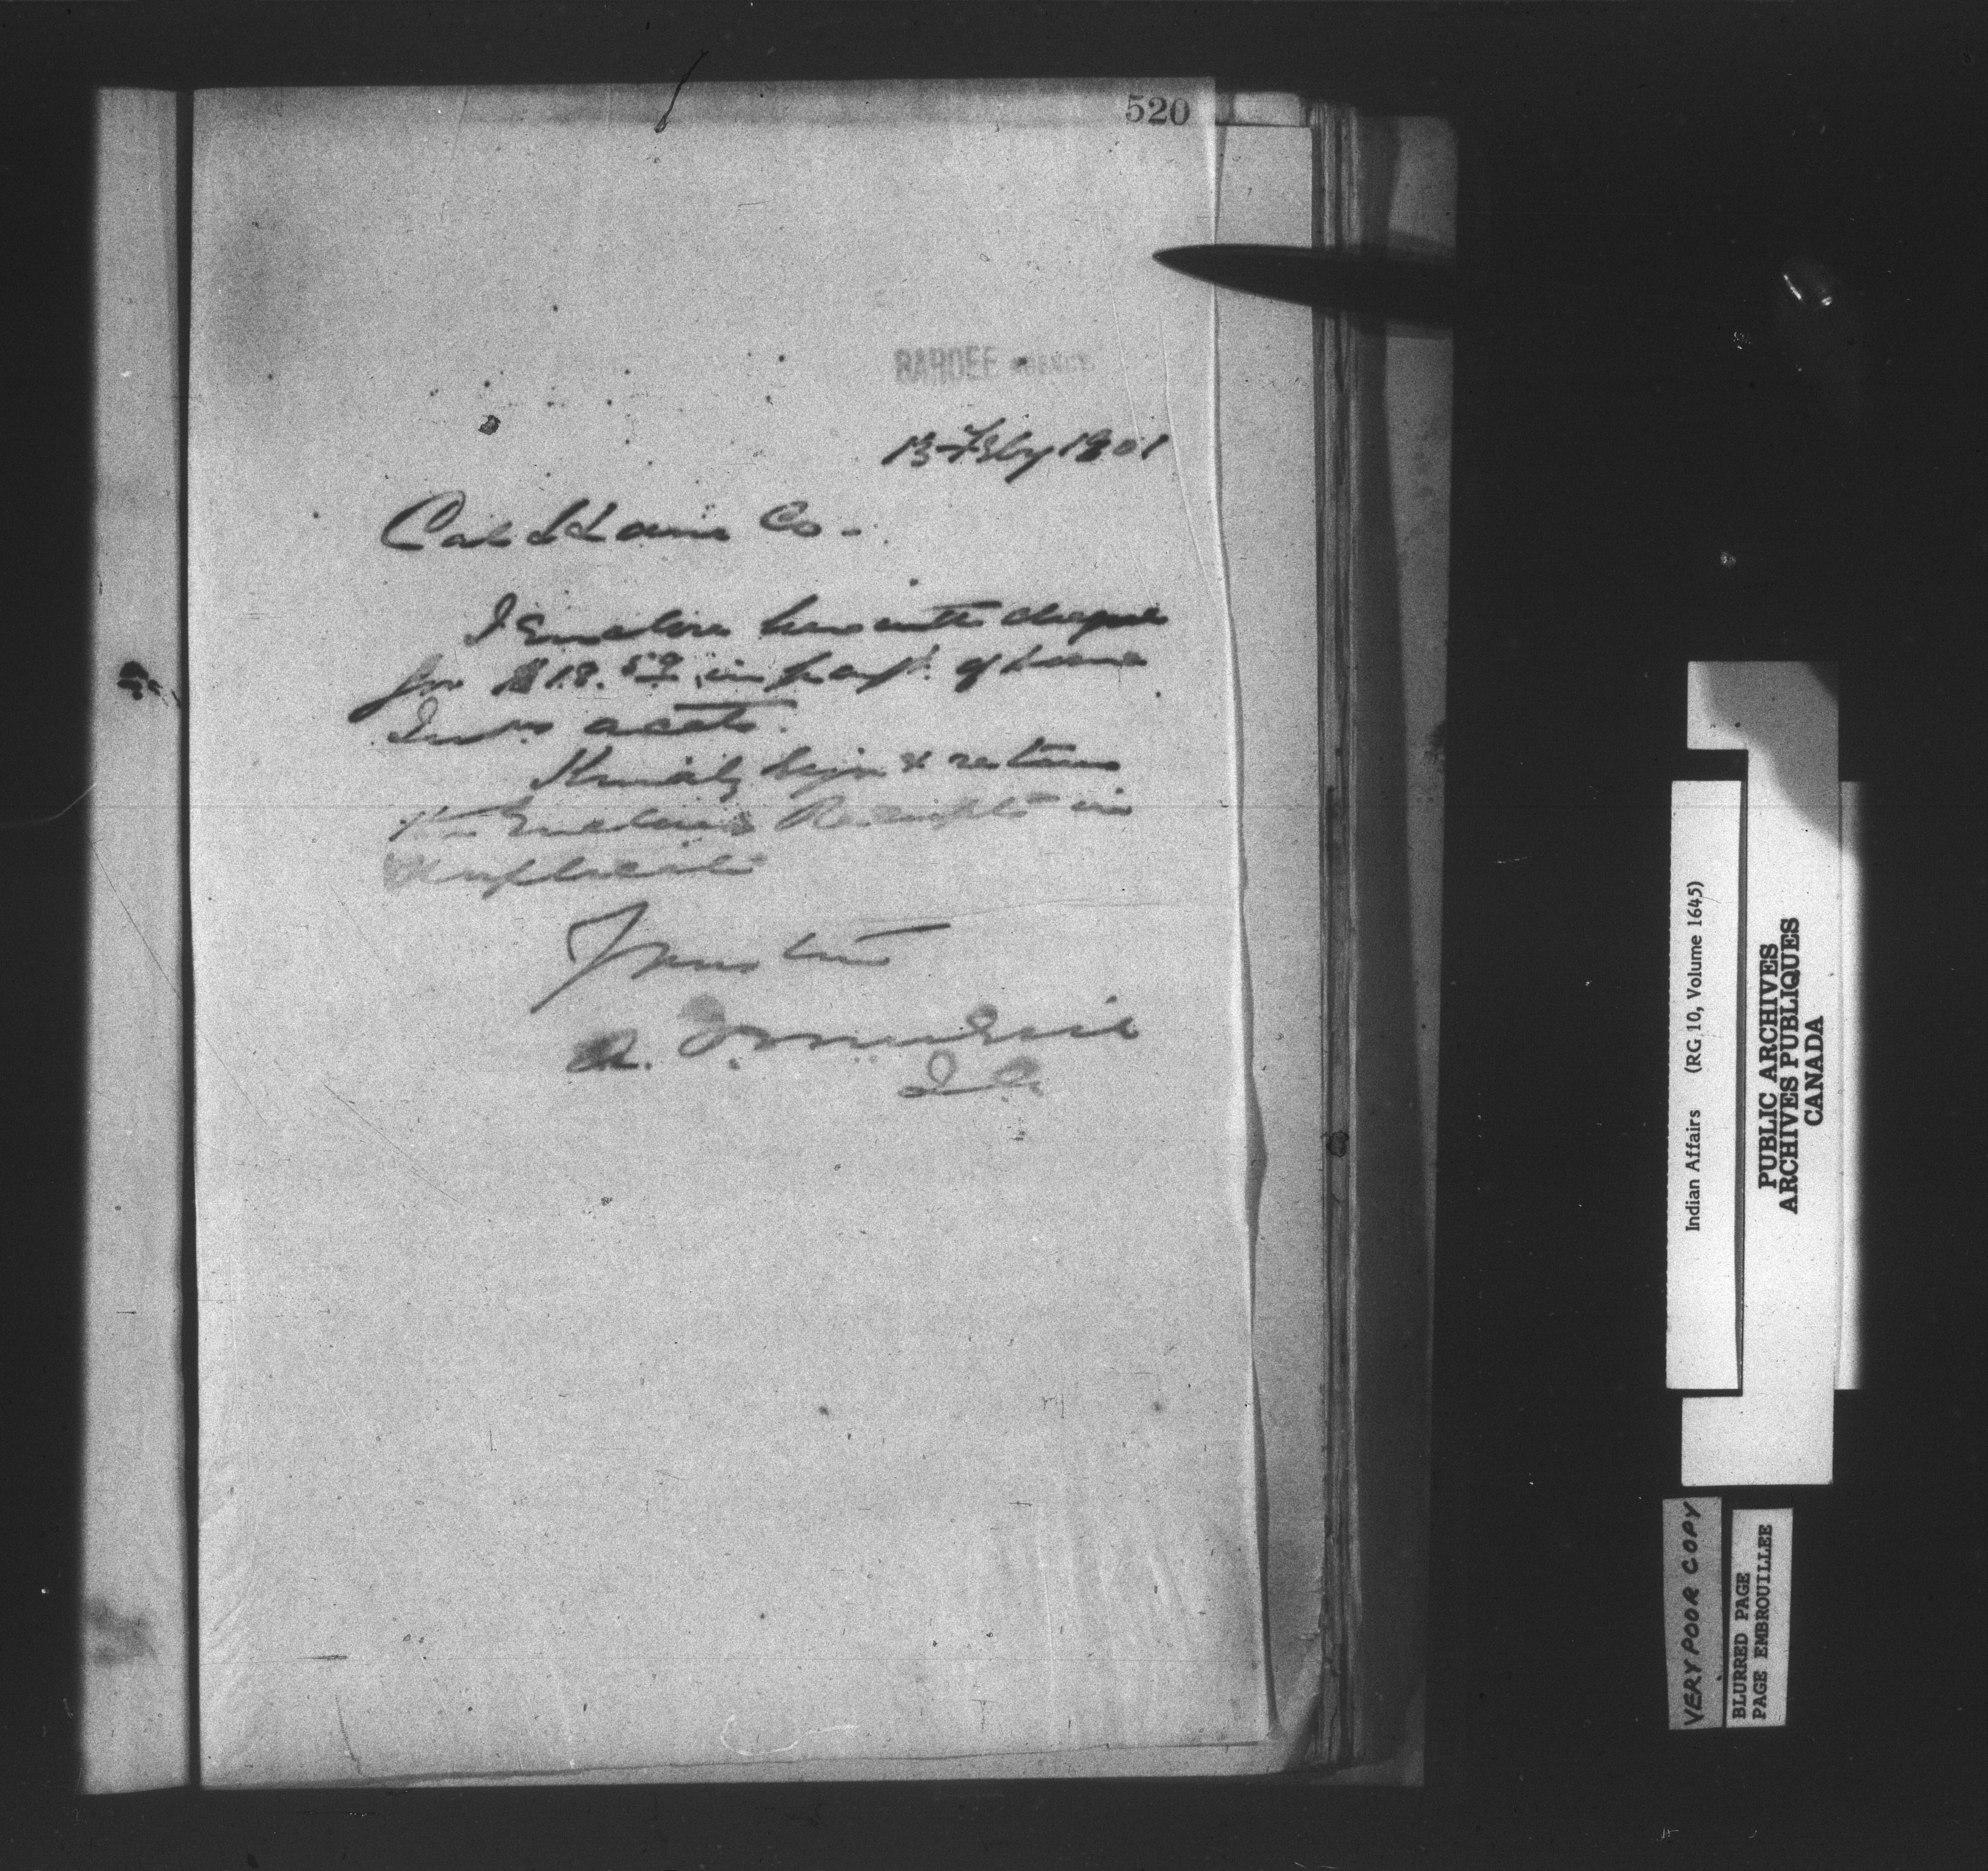 520
SARCEE AGENCY
13 Feby 1901
Co.
I Enclose herewith cheque
for $18.59 in payt. of
accts.
Kindly sign & return
the Enclosed Receipts in
duplicate
Yours truly
A.
I. A.
Indian Affairs (RG 10, Volume 1645)
PUBLIC ARCHIVES
ARCHIVES PUBLIQUES
CANADA
VERY POOR COPY
BLURRED PAGE
PAGE EMBROUILLEE